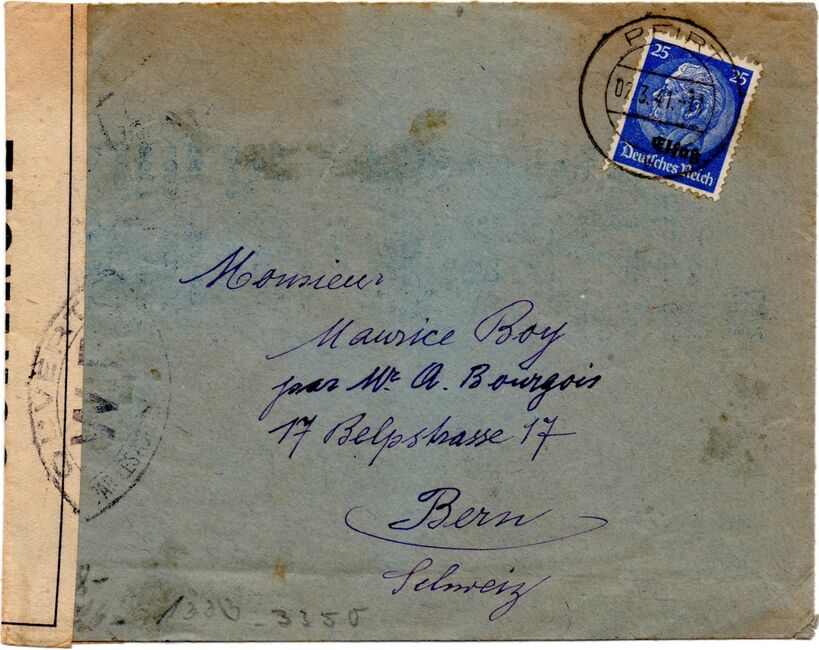 25 25
02.3.41.-11
Elsaß
Deutsches Reich
Monsieur
Maurice Boy
par Mr A. Bourgois
17 Belpstrasse 17
Bern
Schweiz
3350